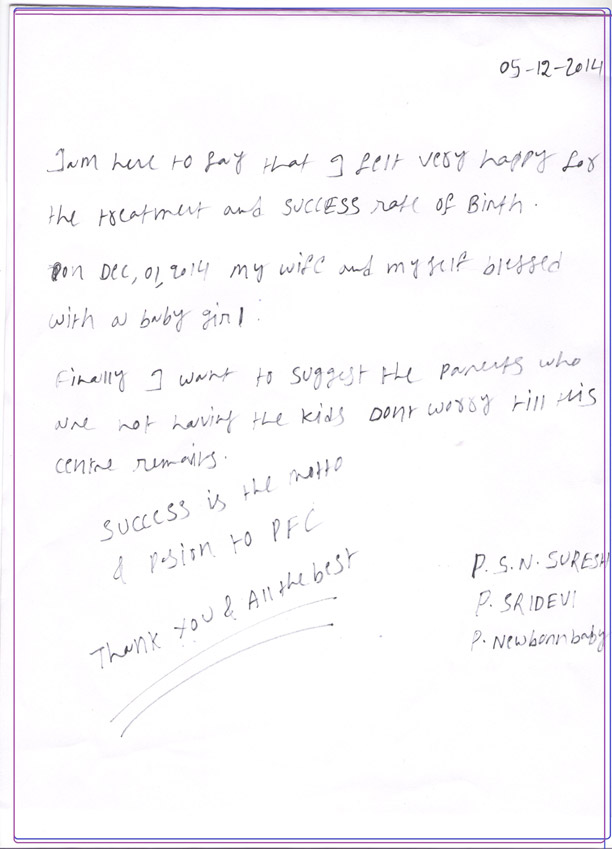 05-12-2014
Iam here to say that I felt very happy for
the treatment and SUCCESS rate of Birth.
on Dec, 01, 2014 my wife and myself blessed
with a baby girl.
Finally I want to suggest the parents who
are not having the kids Dont worry till this
centre remains.
SUCCESS is the motto
& Pasion to PFC
Thank You & All the best
P. S. N. SURESH
P. SRIDEVI
P. Newbornbaby